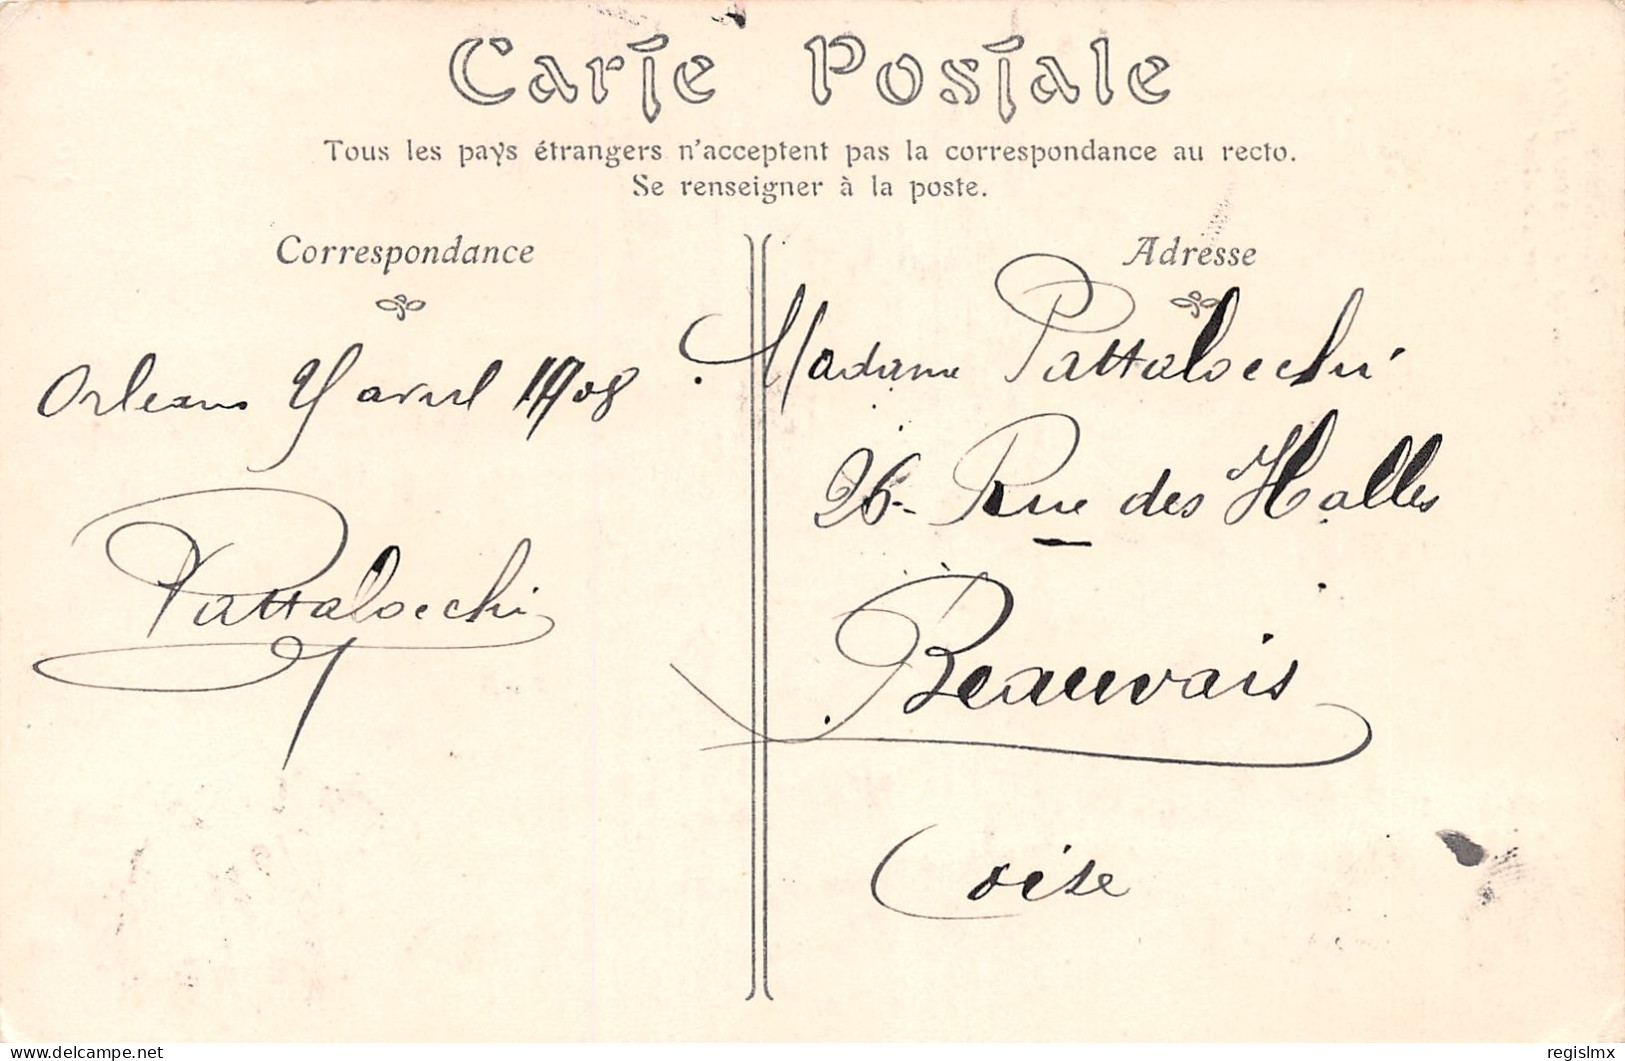 Carte Postale
Tous les pays étrangers n'acceptent pas la correspondance au recto.
Se renseigner à la poste.
Correspondance
Orleans avril 1908
Pattaloechi
Adresse
Madame Pattaloechi
26 - Rue des Halles
Beauvais
Oise
delcampe.net
regislmx